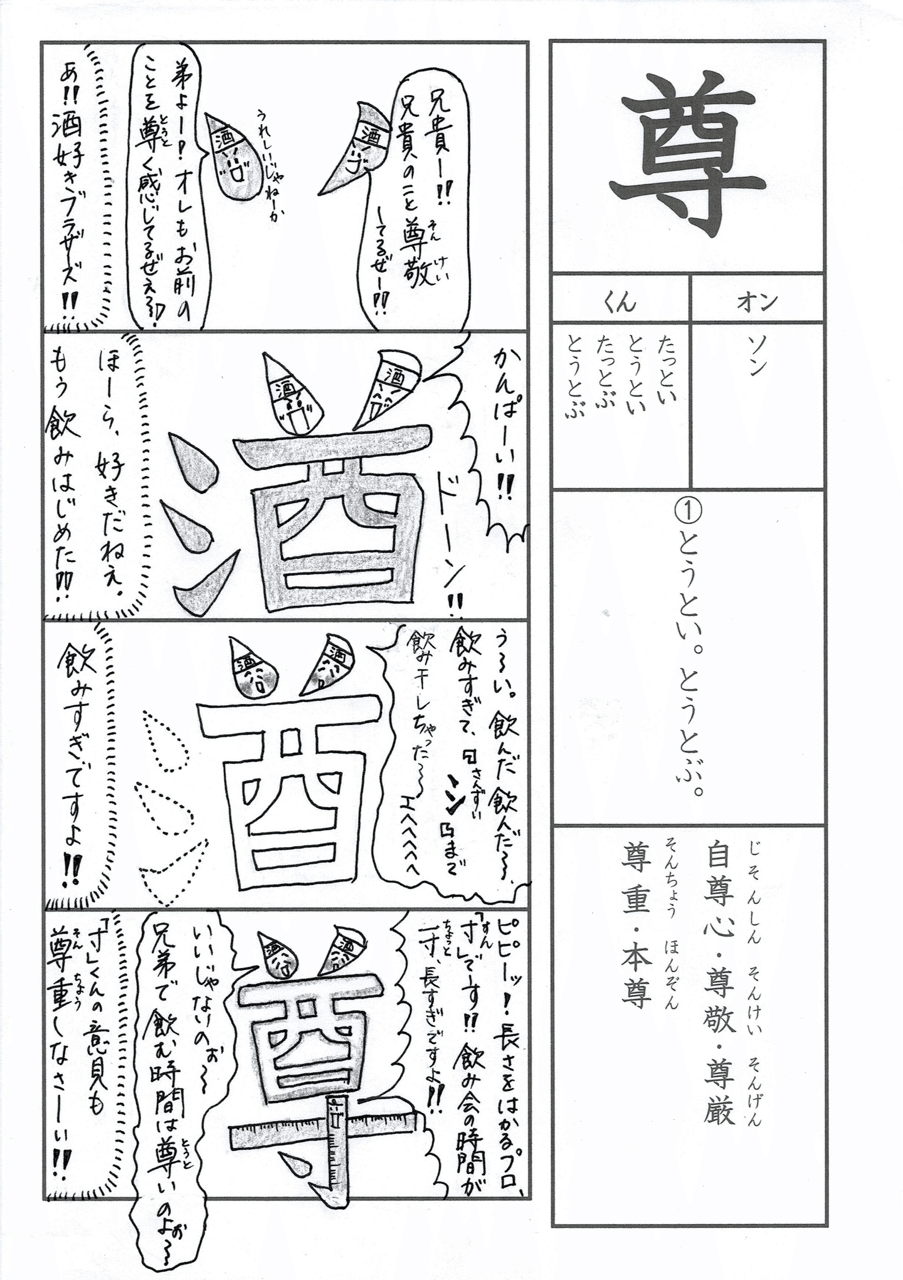 尊
オン
くん
ソン
たっとい
とうとい
たっとぶ
とうとぶ
①とうとい。とうとぶ。
じそんしん そんけい そんげん
自尊心・尊敬・尊厳
そんちょう ほんぞん
尊重・本尊
兄貴ー!!
兄貴のこと尊敬
そんけい
してるぜー!!
うれしいじゃねーか
酒
酒
弟よー!オレもお前の
ことを尊く感じてるぜえ〜!!
とうと
あ!!酒好きブラザーズ!!
かんぱーい!!
ドーン!!
酒
酒
酒
ほーら、好きだねえ。
もう飲みはじめた!!
う〜い。飲んだ飲んだ〜。
飲みすぎて、「氵」まで
さんずい
飲み干しちゃった〜
エヘヘヘヘ
酒
酒
酋
飲みすぎですよ!!
ピピーッ!長さをはかるプロ、
「寸」でーす!!飲み会の時間が
すん
一寸、長すぎですよ!!
ちょっと
酒
酒
尊
いいじゃないのぉ〜
兄弟で飲む時間は尊いのよぉ〜
とうと
「寸」くんの意見も
尊重しなさーい!!
そんちょう